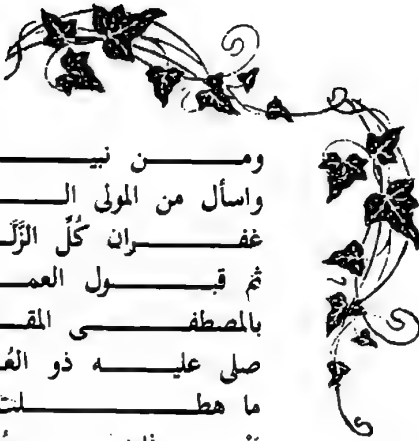 ومـــن نبيـــــــ
واسأل من المولى الـــــ
غفـــــران كُلِّ الزَّلَــ
ثم قبــــــول العمـــ
بالمصطفــــــى المقـــ
صلى عليـــــه ذو العُـ
ما هطـــــــلت